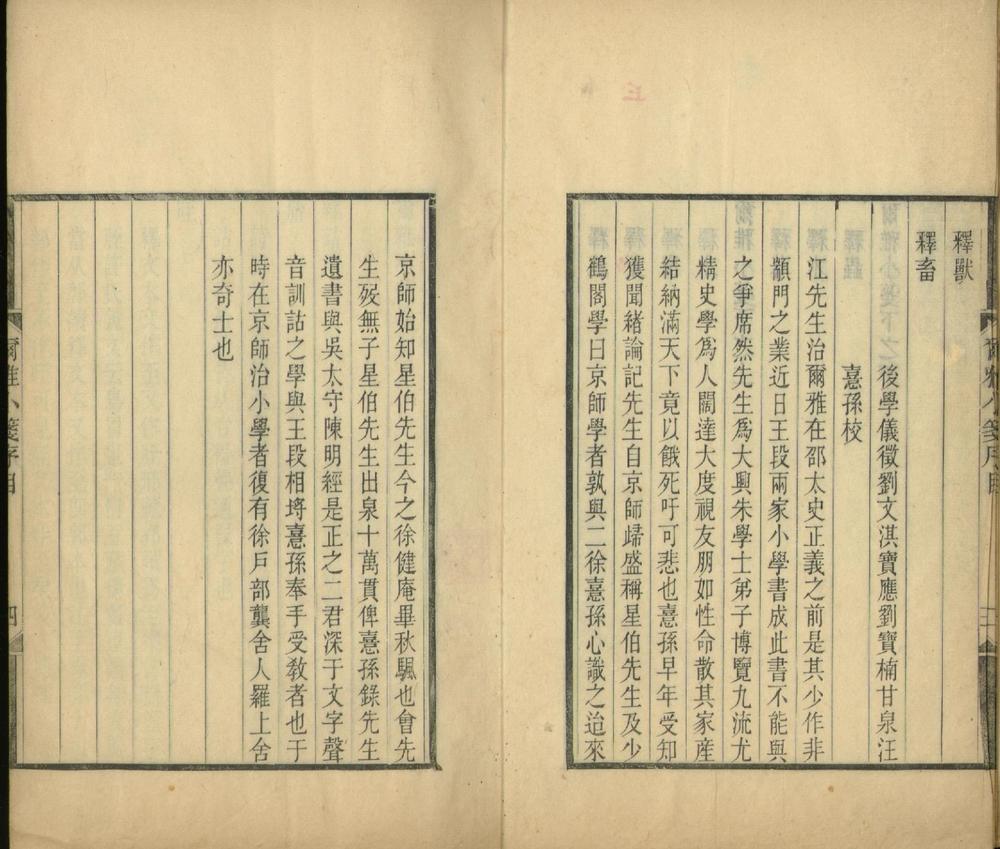 釋獸
釋畜
後學儀徵劉文淇寶應劉寶楠甘泉汪
憙孫校
江先生治爾雅在邵太史正義之前是其少作非
顓門之業近日王段兩家小學書成此書不能與
之爭席然先生爲大興朱學士弟子博覽九流尤
精史學爲人闊達大度視友朋如性命散其家産
結納滿天下竟以餓死吁可悲也憙孫早年受知
獲聞緒論記先生自京師歸盛稱星伯先生及少
鶴閣學曰京師學者孰與二徐憙孫心識之迨來
京師始知星伯先生今之徐健庵畢秋颿也會先
生歿無子星伯先生出泉十萬貫俾憙孫錄先生
遺書與吳太守陳明經是正之二君深于文字聲
音訓詁之學與王段相埒憙孫奉手受敎者也于
時在京師治小學者復有徐戸部龔舍人羅上舍
亦奇士也
爾雅小箋序目
四